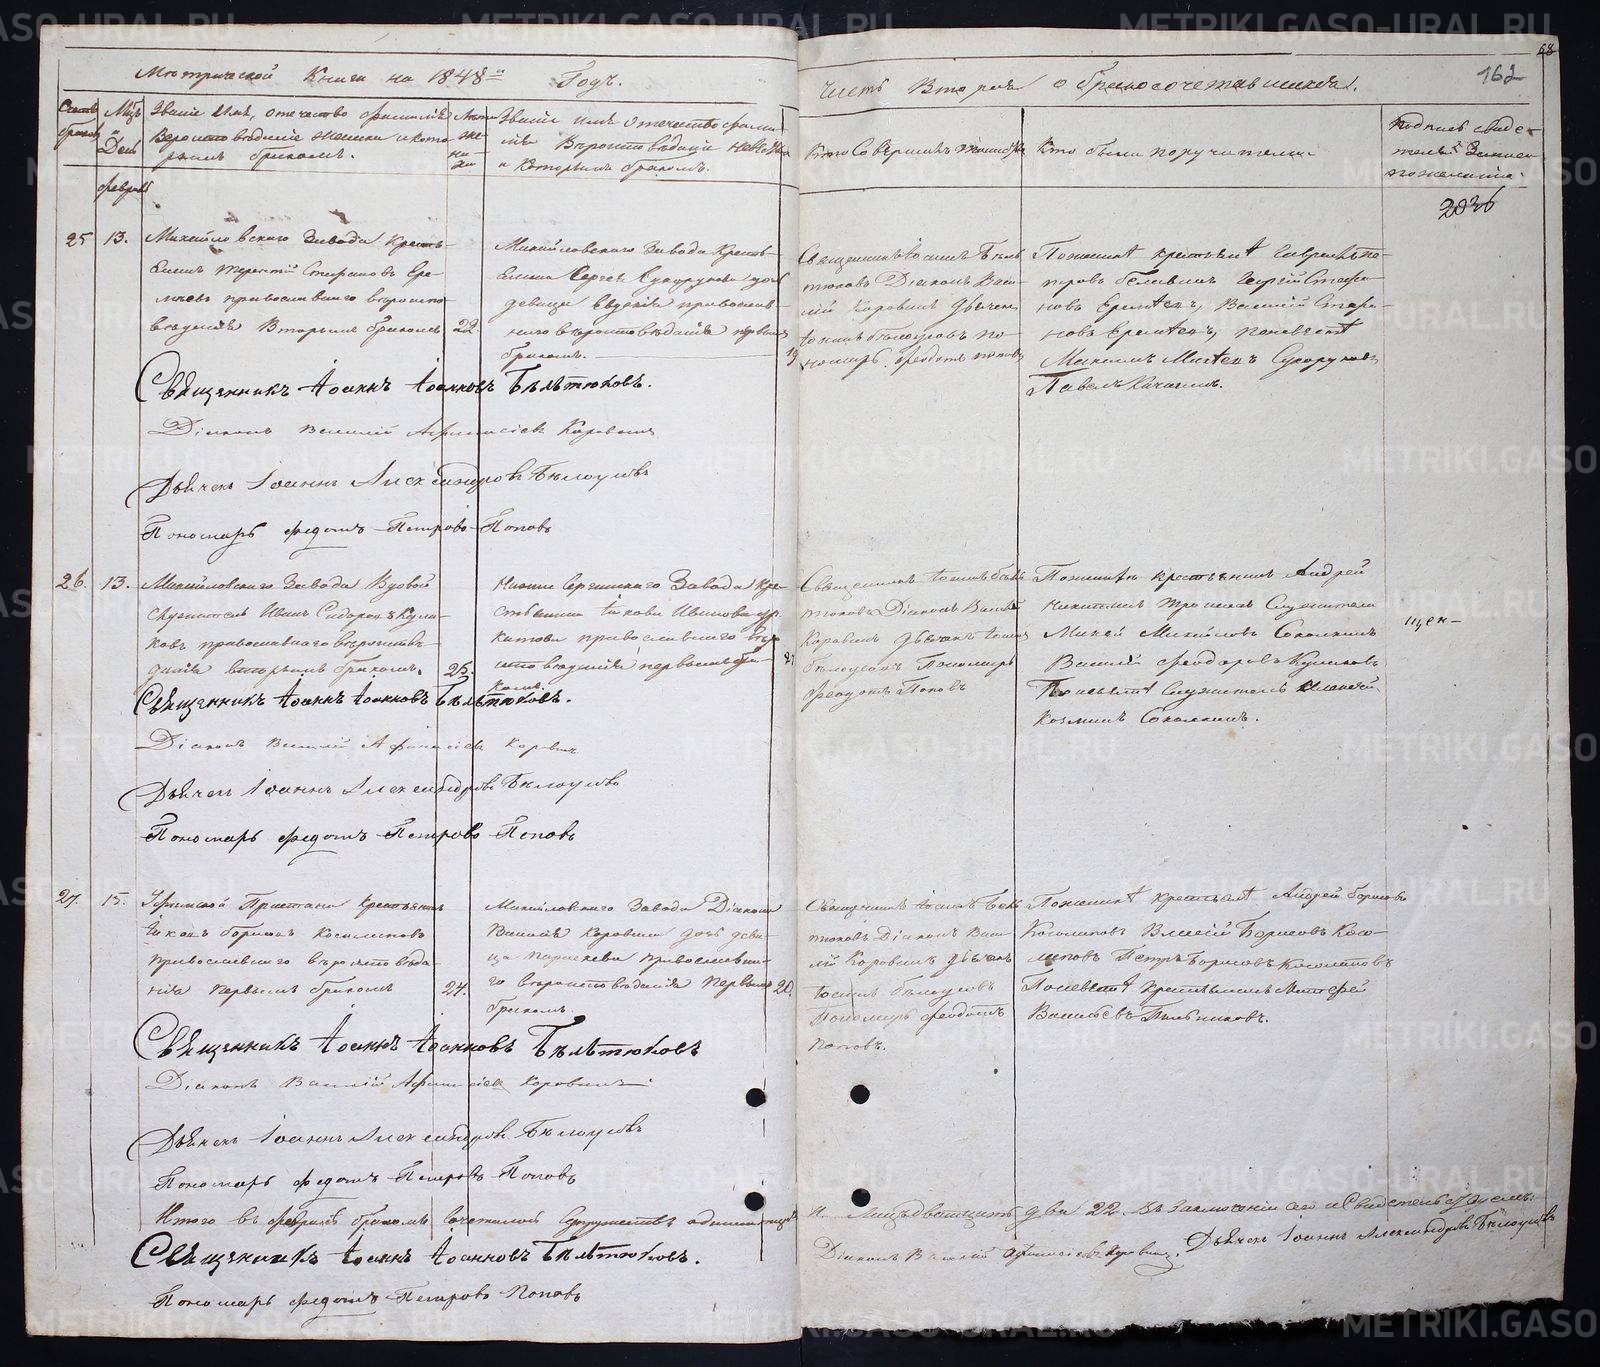 Метрической Книги на 1848й Годъ.
Часть Вторая о бракосочетавшихся.
162
68
Счетъ браковъ
Мѣсяцъ и День
Званіе Имя, отечество фамилія
Вероисповѣданіе жениха и кото
рымъ бракомъ.
Лѣта же-ни-ха
Званіе имя отечество фами
лія Вѣроисповѣданіе невесты
и Которымъ бракомъ.
Кто Совершалъ таинство
Кто были поручители
Подпись свиде-
телей Записи
по желанію
февраль
2036
25
13.
Михайловскаго Завода Кресть-
янинъ Терентій Стефановъ Ере-
мѣевъ православнаго вѣроиспо-
вѣданія Вторымъ бракомъ
22.
Михайловскаго Завода Кресть-
янина Сергея Сухорукова дочь
девица Евдокія православ-
наго вѣроисповѣданія первымъ
бракомъ.
19
Священникъ Іоаннъ Бѣль
тюковъ Діаконъ Васи-
лій Коровинъ Дьячекъ
Іоаннъ Бѣлоусовъ по-
номарь Феодотъ Поповъ
По женихѣ крестьяне Гаврилъ Пе-
тровъ Георгій Стефа-
новъ Еремѣевъ, Василій Стефа-
новъ Еремѣевъ, по невѣстѣ
Сухоруковъ
Павелъ
Священникъ Іоаннъ Іоанновъ Бѣльтюковъ.
Діаконъ Василій Афанасіевъ Коровинъ
Дьячекъ Іоаннъ Александровъ Бѣлоусовъ
Пономарь Федотъ Петровъ Поповъ
26.
13.
Михайловскаго Завода Вдовой
служитель Иванъ Сидоровъ Кули-
ковъ православнаго вѣроисповѣ-
данія вторымъ бракомъ.
25.
Нижне Сергинскаго Завода Кре-
стьянина Іакова Иванова
православнаго вѣро
исповѣданія первымъ бра-
комъ.
21
Священникъ Іоаннъ Бѣль
тюковъ Діаконъ Василій
Коровинъ Дьячекъ Іоаннъ
Бѣлоусовъ Пономарь
Феодотъ Поповъ
По женихѣ крестьянинъ Андрей
Никитинъ Служители
Михайловъ Соколкинъ
Василій Феодоровъ Куликовъ
По невѣстѣ Служитель Алексѣй
Козминъ Соколкинъ.
Священникъ Іоаннъ Іоанновъ Бѣльтюковъ.
Діаконъ Василій Афанасіевъ Коровинъ
Дьячекъ Іоаннъ Александровъ Бѣлоусовъ
Пономарь Федотъ Петровъ Поповъ
27.
15.
Уфимской Пристани Крестьянинъ
Іаковъ Борисовъ Косолаповъ
православнаго вѣроисповѣда-
нія первымъ бракомъ
24.
Михайловскаго Завода Діакона
Василія Коровина дочь деви-
ца Параскева православна-
го вѣроисповѣданія первымъ
бракомъ.
20.
Священникъ Іоаннъ Бѣль
тюковъ Діаконъ Васи-
лій Коровинъ Дьячекъ
Іоаннъ Бѣлоусовъ
Пономарь Феодотъ
Поповъ.
По женихѣ крестьяне Андрей Борисовъ
Косолаповъ Василій Борисовъ Косо-
лаповъ Петръ Борисовъ Косолаповъ
По невѣстѣ Крестьянинъ
Васильевъ
Священникъ Іоаннъ Іоанновъ Бѣльтюковъ
Діаконъ Василій Афанасіевъ Коровинъ
Дьячекъ Іоаннъ Александровъ Бѣлоусовъ
Пономарь Федотъ Петровъ Поповъ
Итого въ февралѣ бракомъ сочеталось Супружествъ одинатцать
и Лицъ двадцать два 22. Въ заключеніи сего и Свидетельствуемъ
Священникъ Іоаннъ Іоанновъ Бѣльтюковъ.
Діаконъ Василій Афанасіевъ Коровинъ.
Дьячекъ Іоаннъ Александровъ Бѣлоусовъ
Пономарь Федотъ Петровъ Поповъ
METRIKI.GASO-URAL.RU